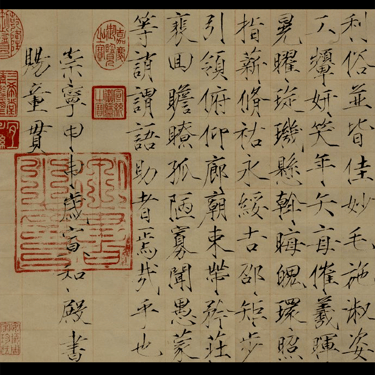 利俗並皆佳妙毛施淑姿
工嚬妍笑年矢每催羲暉
晃曜璇璣懸斡晦魄環照
指薪脩祜永綏吉邵矩步
引領俯仰廊廟束帶矜莊
裵回瞻眺孤陋寡聞愚蒙
等誚謂語助者焉哉乎也
崇寧甲申歲宣和殿書
賜童貫